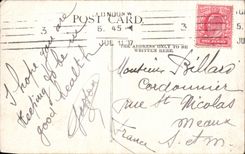 LONDON.W
POST CARD.
6.45 PM
JUL
17
THE ADDRESS ONLY TO BE
WRITTEN HERE.
I hope you are
keeping to be in
good health
Monsieur Billard
Cordonnier
rue St Nicolas
Meaux
France S et M